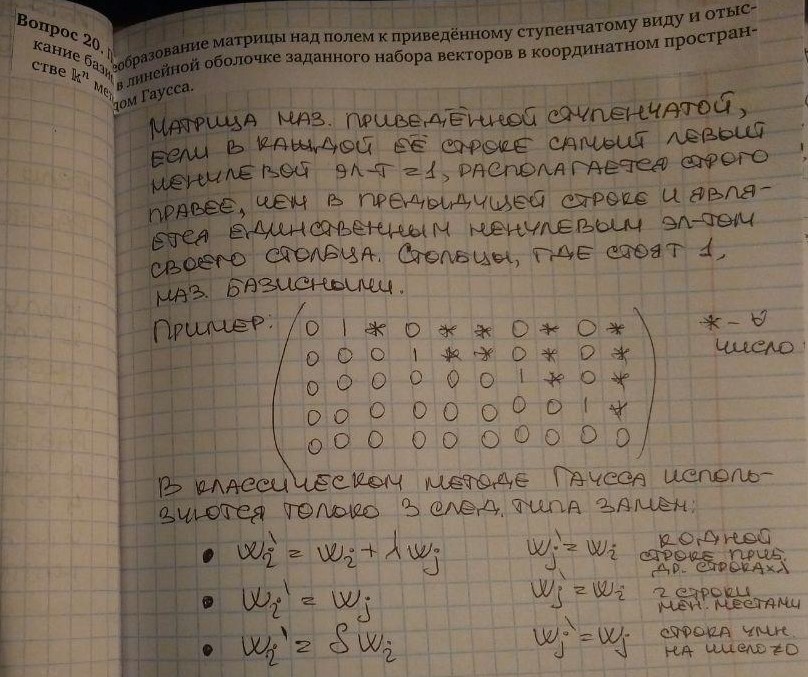 Вопрос 20.
образование матрицы над полем к приведённому ступенчатому виду и отыс-
кание бази в линейной оболочке заданного набора векторов в координатном простран-
стве 𝕜ⁿ мет дом Гаусса.
МАТРИЦА НАЗ. ПРИВЕДЁННОЙ СТУПЕНЧАТОЙ,
ЕСЛИ В КАЖДОЙ ЕЁ СТРОКЕ САМЫЙ ЛЕВЫЙ
НЕНУЛЕВОЙ ЭЛ-Т =1, РАСПОЛАГАЕТСЯ СТРОГО
ПРАВЕЕ, ЧЕМ В ПРЕДЫДУЩЕЙ СТРОКЕ И ЯВЛЯ-
ЕТСЯ ЕДИНСТВЕННЫМ НЕНУЛЕВЫМ ЭЛ-ТОМ
СВОЕГО СТОЛБЦА. СТОЛБЦЫ, ГДЕ СТОЯТ 1,
НАЗ. БАЗИСНЫМИ.
ПРИМЕР: 0 1 * 0 * * 0 * 0 * * – ∀
0 0 0 1 * * 0 * 0 * ЧИСЛО
0 0 0 0 0 0 1 * 0 *
0 0 0 0 0 0 0 0 1 *
0 0 0 0 0 0 0 0 0 0
В КЛАССИЧЕСКОМ МЕТОДЕ ГАУССА ИСПОЛЬ-
ЗУЮТСЯ ТОЛЬКО 3 СЛЕД. ТИПА ЗАМЕН:
• wi' = wi + λwj wj' = wi К ОДНОЙ
СТРОКЕ ПРИБ.
ДР. СТРОКА×λ
• wi' = wj wj' = wi 2 СТРОКИ
МЕН. МЕСТАМИ
• wi' = δwi wj' = wj СТРОКА УМН.
НА ЧИСЛО ≠0